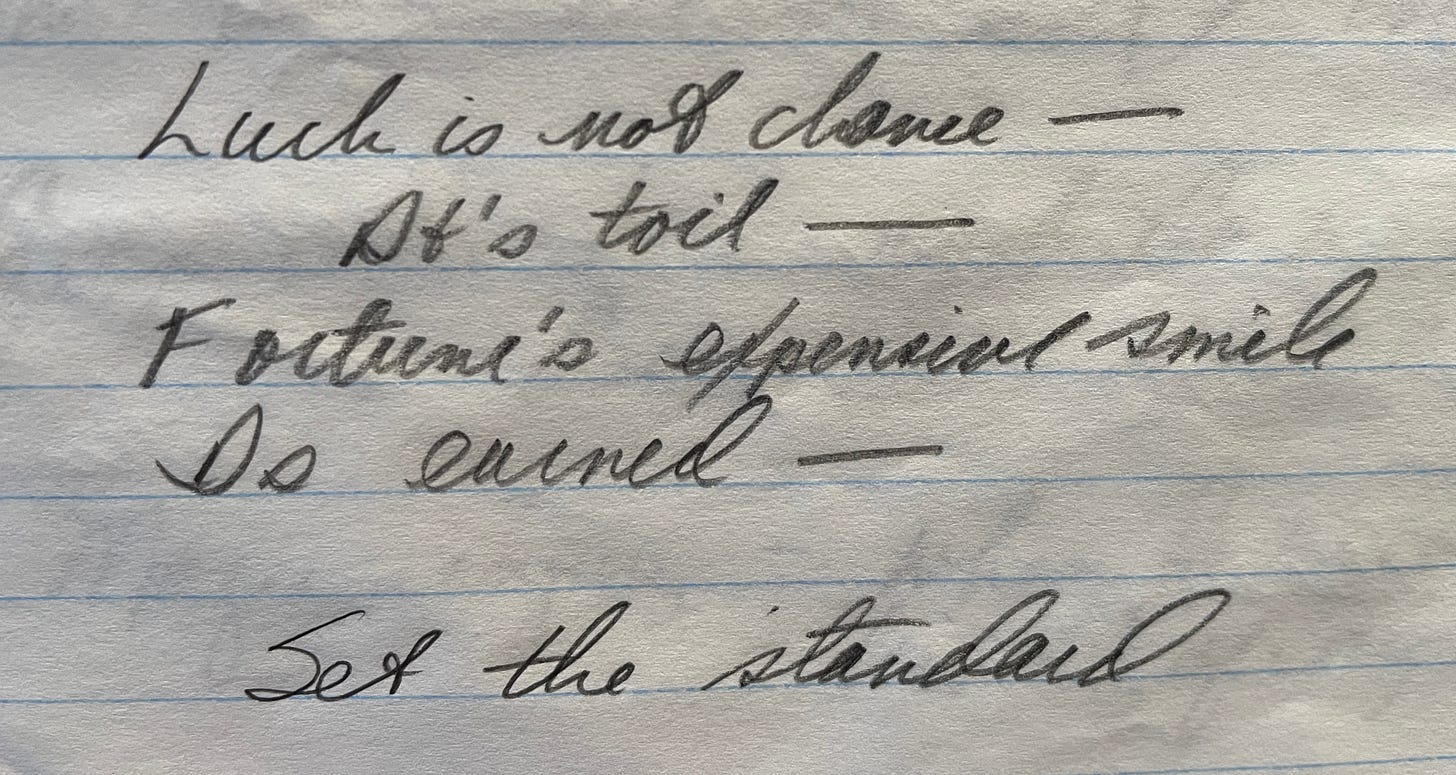 Luck is not chance —
It's toil —
Fortune's expensive smile
Is earned —
Set the standard